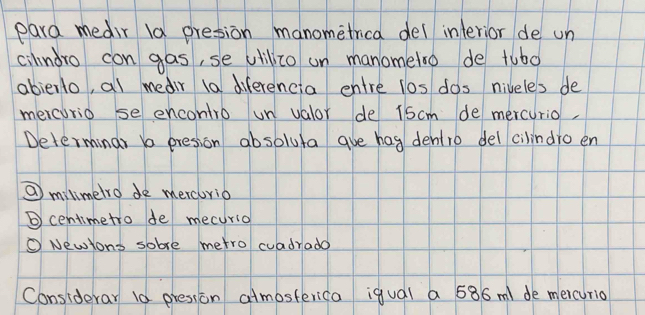 para medir la presión manométrica del interior de un
cilindro con gas, se utilizo un manometro de tubo
abierto, al medir la diferencia entre los dos niveles de
mercurio se encontro un valor de 15cm de mercurio.
Determinar la presión absoluta que hay dentro del cilindro en
a) milimetro de mercurio
b) centimetro de mecurio
c) Newtons sobre metro cuadrado
Considerar la presión atmosferica igual a 586 ml de mercurio